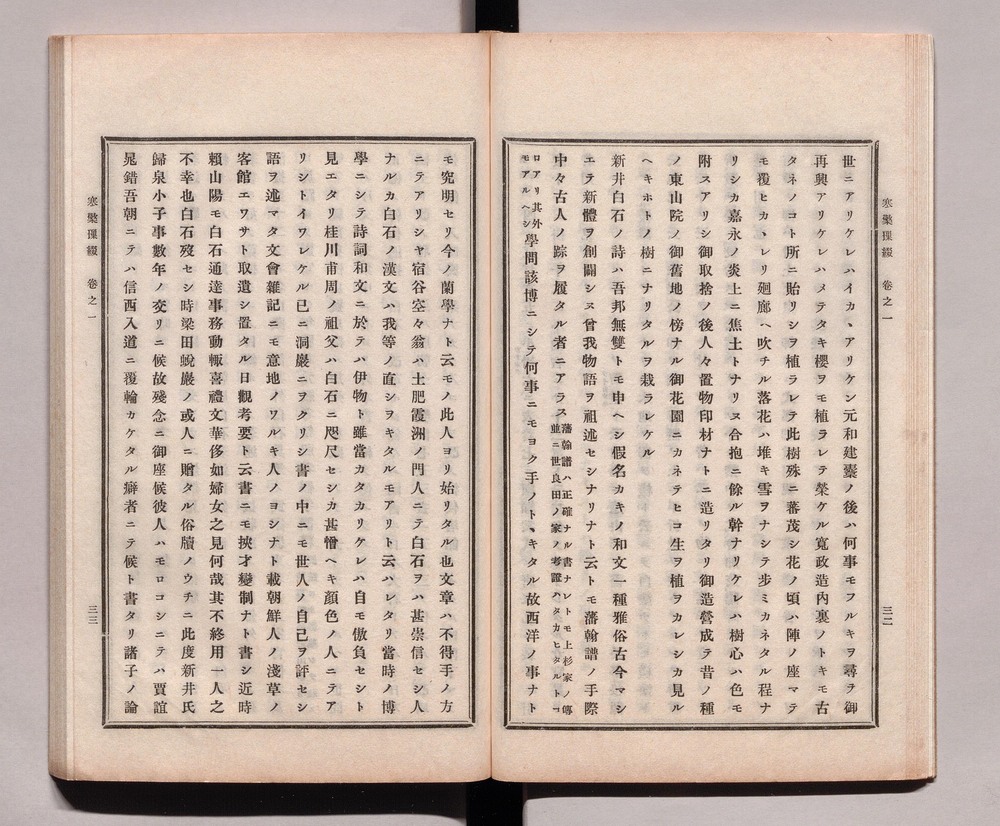 寒檠璅綴　卷之一
三二
世ニアリケレハイカヽアリケン元和建櫜ノ後ハ何事モフルキヲ尋ラ御
再興アリケレハメテタキ櫻ヲモ植ラレテ榮ケル寛政造內裏ノトキモ古
タネノコト所ニ貽リシヲ植ラレテ此樹殊ニ蕃茂シ花ノ頃ハ陣ノ座マテ
モ覆ヒカヽレリ廻廊ヘ吹チル落花ハ堆キ雪ヲナシテ步ミカネタル程ナ
リシカ嘉永ノ炎上ニ焦土トナリヌ合抱ニ餘ル幹ナリケレハ樹心ハ色モ
附スアリシ御取捨ノ後人々置物印材ナトニ造リタリ御造營成テ昔ノ種
ノ東山院ノ御舊地ノ傍ナル御花園ニカネテヒコ生ヲ植ヲカレシカ見ル
ヘキホトノ樹ニナリタルヲ栽ラレケル
新井白石ノ詩ハ吾邦無雙トモ申ヘシ假名カキノ和文一種雅俗古今マシ
エラ新體ヲ創闢シヌ曾我物語ヲ祖述セシナリナト云トモ藩翰譜ノ手際
中々古人ノ踪ヲ履タル者ニアラス藩翰譜ハ正確ナル書ナレトモ上杉家ノ傳
並ニ世良田ノ家ノ考證ハタカヒタルト「
ロアリ其外
モアルヘシ學問該博ニシテ何事ニモヨク手ノトヽキタル故西洋ノ事ナト
モ究明セリ今ノ蘭學ナト云モノ此人ヨリ始リタル也文章ハ不得手ノ方
ニテアリシヤ宿谷空々翁ハ土肥霞洲ノ門人ニテ白石ヲハ甚崇信セシ人
ナルカ白石ノ漢文ハ我等ノ直シヲキタルモアリト云ハレタリ當時ノ博
學ニシテ詩詞和文ニ於テハ伊物ト雖當カタカリケレハ自モ傲負セシト
見エタリ桂川甫周ノ祖父ハ白石ニ咫尺セシカ甚憎ヘキ顏色ノ人ニテア
リシトイワレケル已ニ洞巖ニヲクリシ書ノ中ニモ世人ノ自己ヲ評セシ
語ヲ述マタ文會雜記ニモ意地ノワルキ人ノヨシナト載朝鮮人ノ淺草ノ
客館エワサト取遣シ置タル日觀考要ト云書ニモ挾才變制ナト書シ近時
賴山陽モ白石通達事務動輙喜禮文華侈如婦女之見何哉其不終用一人之
不幸也白石歿セシ時梁田蛻巖ノ或人ニ贈タル俗牘ノウチニ此度新井氏
歸泉小子事數年ノ交リニ候故殘念ニ御座候彼人ハモロコシニテハ賈誼
晁錯吾朝ニテハ信西入道ニ覆輪カケタル癖者ニテ候ト書タリ諸子ノ論
寒檠璅綴　卷之一
三三